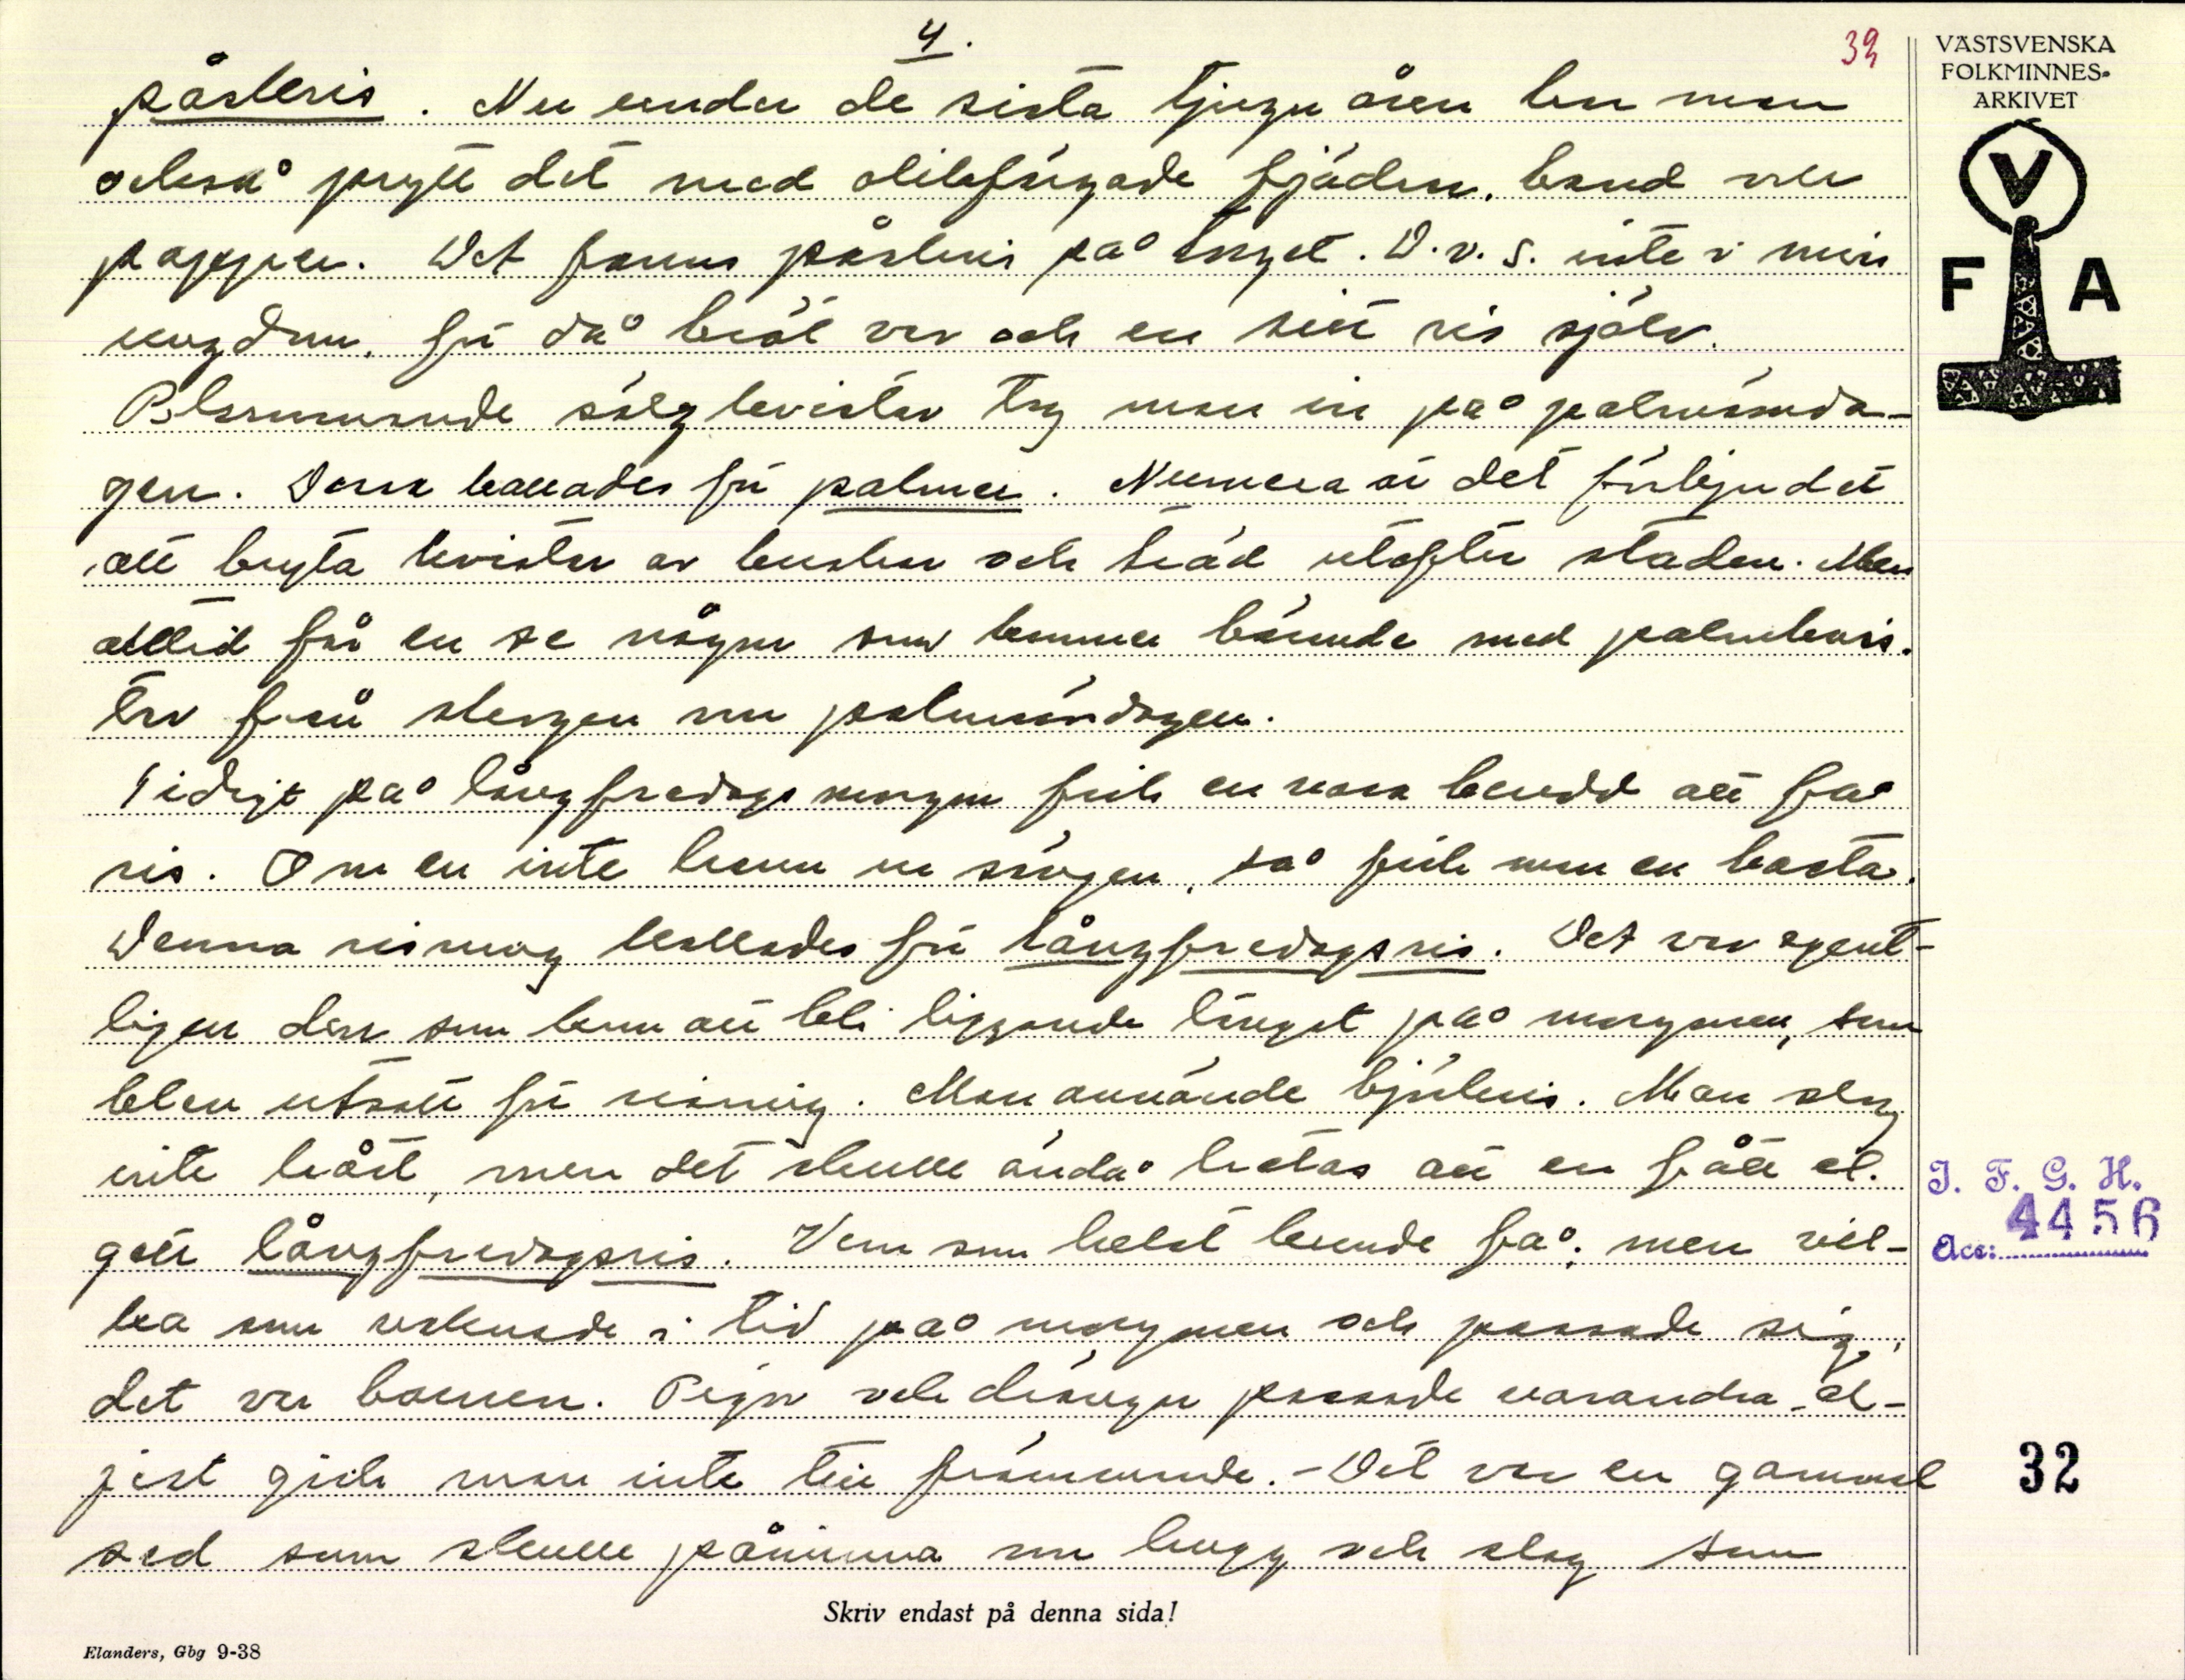 4.
39
VÄSTSVENSKA
FOLKMINNES-
ARKIVET
V
F A
påskris. Nu under de sista tjugu åren har man
också prytt det med olikfärgade fjädrar, band och
papper. Det fanns påskris på torget. D.v.s. inte i min
ungdom, för då bröt var och en sitt ris själv.
Blommande sälgkvistar tog man in på palmsönda-
gen. Dom kallades för palmer. Numera är det förbjudet
att bryta kvistar av buskar och träd utefter staden. Men
alltid får en se någon som kommer bärande med palmkvis-
tar från skogen om palmsöndagen.
Tidigt på långfredagsmorgon fick en vara beredd att få
ris. Om en inte hann ur sängen, så fick man en basta.
Denna risning kallades för långfredagsris. Det var egent-
ligen den som kom att bli liggande längst på morgonen, som
blev utsatt för risning. Man använde björkris. Man slog
inte hårt, men det skulle ändå hetas att en fått el.
gett långfredagsris. Vem som helst kunde få; men vil-
ka som vaknade i tid på morgonen och passade sig,
det var barnen. Pigor och drängar passade varandra, el-
jest gick man inte till främmande. - Det var en gammal
sed som skulle påminna om hugg och slag som
I. F. G. H.
Acc: 4456
32
Skriv endast på denna sida!
Elanders, Gbg 9-38